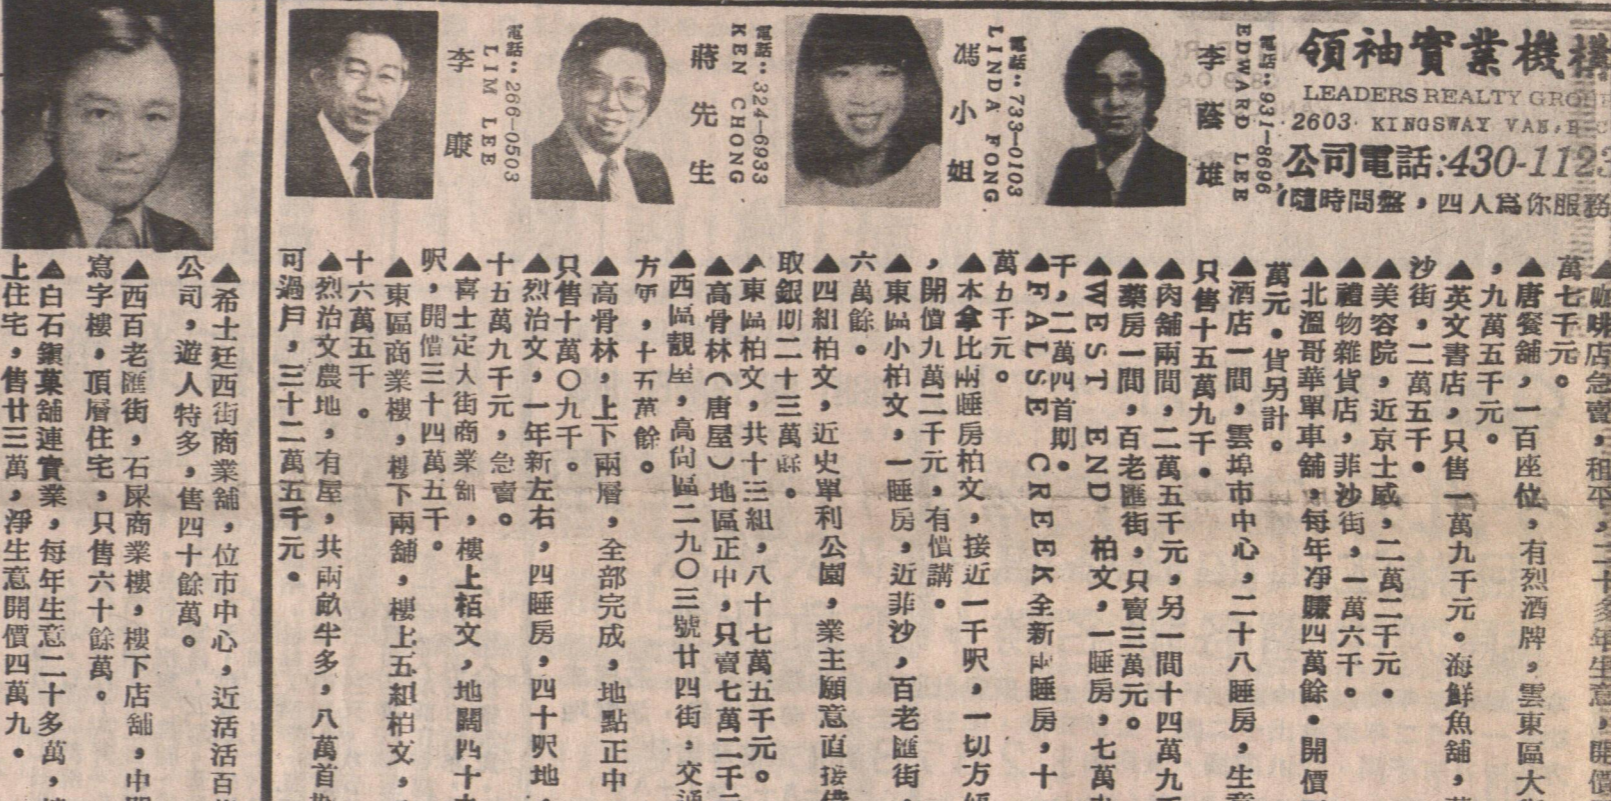 領袖實業機構
LEADERS REALTY GROUP
2603 KINGSWAY VAN, B.C
公司電話:430-1123
隨時問盤，四人為你服務
李蔭雄
EDWARD LEE
電話：931-8696
馮小姐
LINDA FONG
電話：733-0103
蔣先生
KEN CHONG
電話：324-6933
李康
LIM LEE
電話：266-0503
▲咖啡店急賣，租平，二十多年生意，開價
萬七千元。
▲唐餐舖，一百座位，有烈酒牌，雲東區大
，九萬五千元。
▲英文書店，只售一萬九千元。海鮮魚舖，
沙街，二萬五千。
▲美容院，近京士威，二萬二千元。
▲禮物雜貨店，菲沙街，一萬六千。
▲北溫哥華單車舖，每年凈賺四萬餘。開價
萬元。貨另計。
▲酒店一間，雲埠市中心，二十八睡房，生意
只售十五萬九千。
▲肉舖兩間，二萬五千元，另一間十四萬九千
▲藥房一間，百老匯街，只賣三萬元。
▲WEST END 柏文，一睡房，七萬
千，二萬四首期。
▲FALSE CREEK全新 睡房，十
萬九千元。
▲本拿比兩睡房柏文，接近一千呎，一切方
，開價九萬二千元，有價講。
▲東區小柏文，一睡房，近菲沙，百老匯街，
六萬餘。
▲四組柏文，近史單利公園，業主願意直接
取銀期二十三萬餘。
▲東區柏文，共十三組，八十七萬五千元。
▲高骨林（唐屋）地區正中，只賣七萬二千
▲西區靚屋，高尚區二九〇三號廿四街，交通
方便，十五萬餘。
▲高骨林，上下兩層，全部完成，地點正中
只售十萬〇九千。
▲烈治文，一年新左右，四睡房，四十呎地，
十五萬九千元，急賣。
▲喜士定大街商業舖，樓上栢文，地闊四十九
呎，開價三十四萬五千。
▲東區商業樓，樓下兩舖，樓上五組柏文，
十六萬五千。
▲烈治文農地，有屋，共兩畝半多，八萬首
可過戶，三十二萬五千元。
▲希士廷西街商業舖，位市中心，近活活百
公司，遊人特多，售四十餘萬。
▲西百老匯街，石屎商業樓，樓下店舖，中
寫字樓，頂層住宅，只售六十餘萬。
▲白石鎮菓舖連實業，每年生意二十多萬，
上住宅，售廿三萬，凈生意開價四萬九。